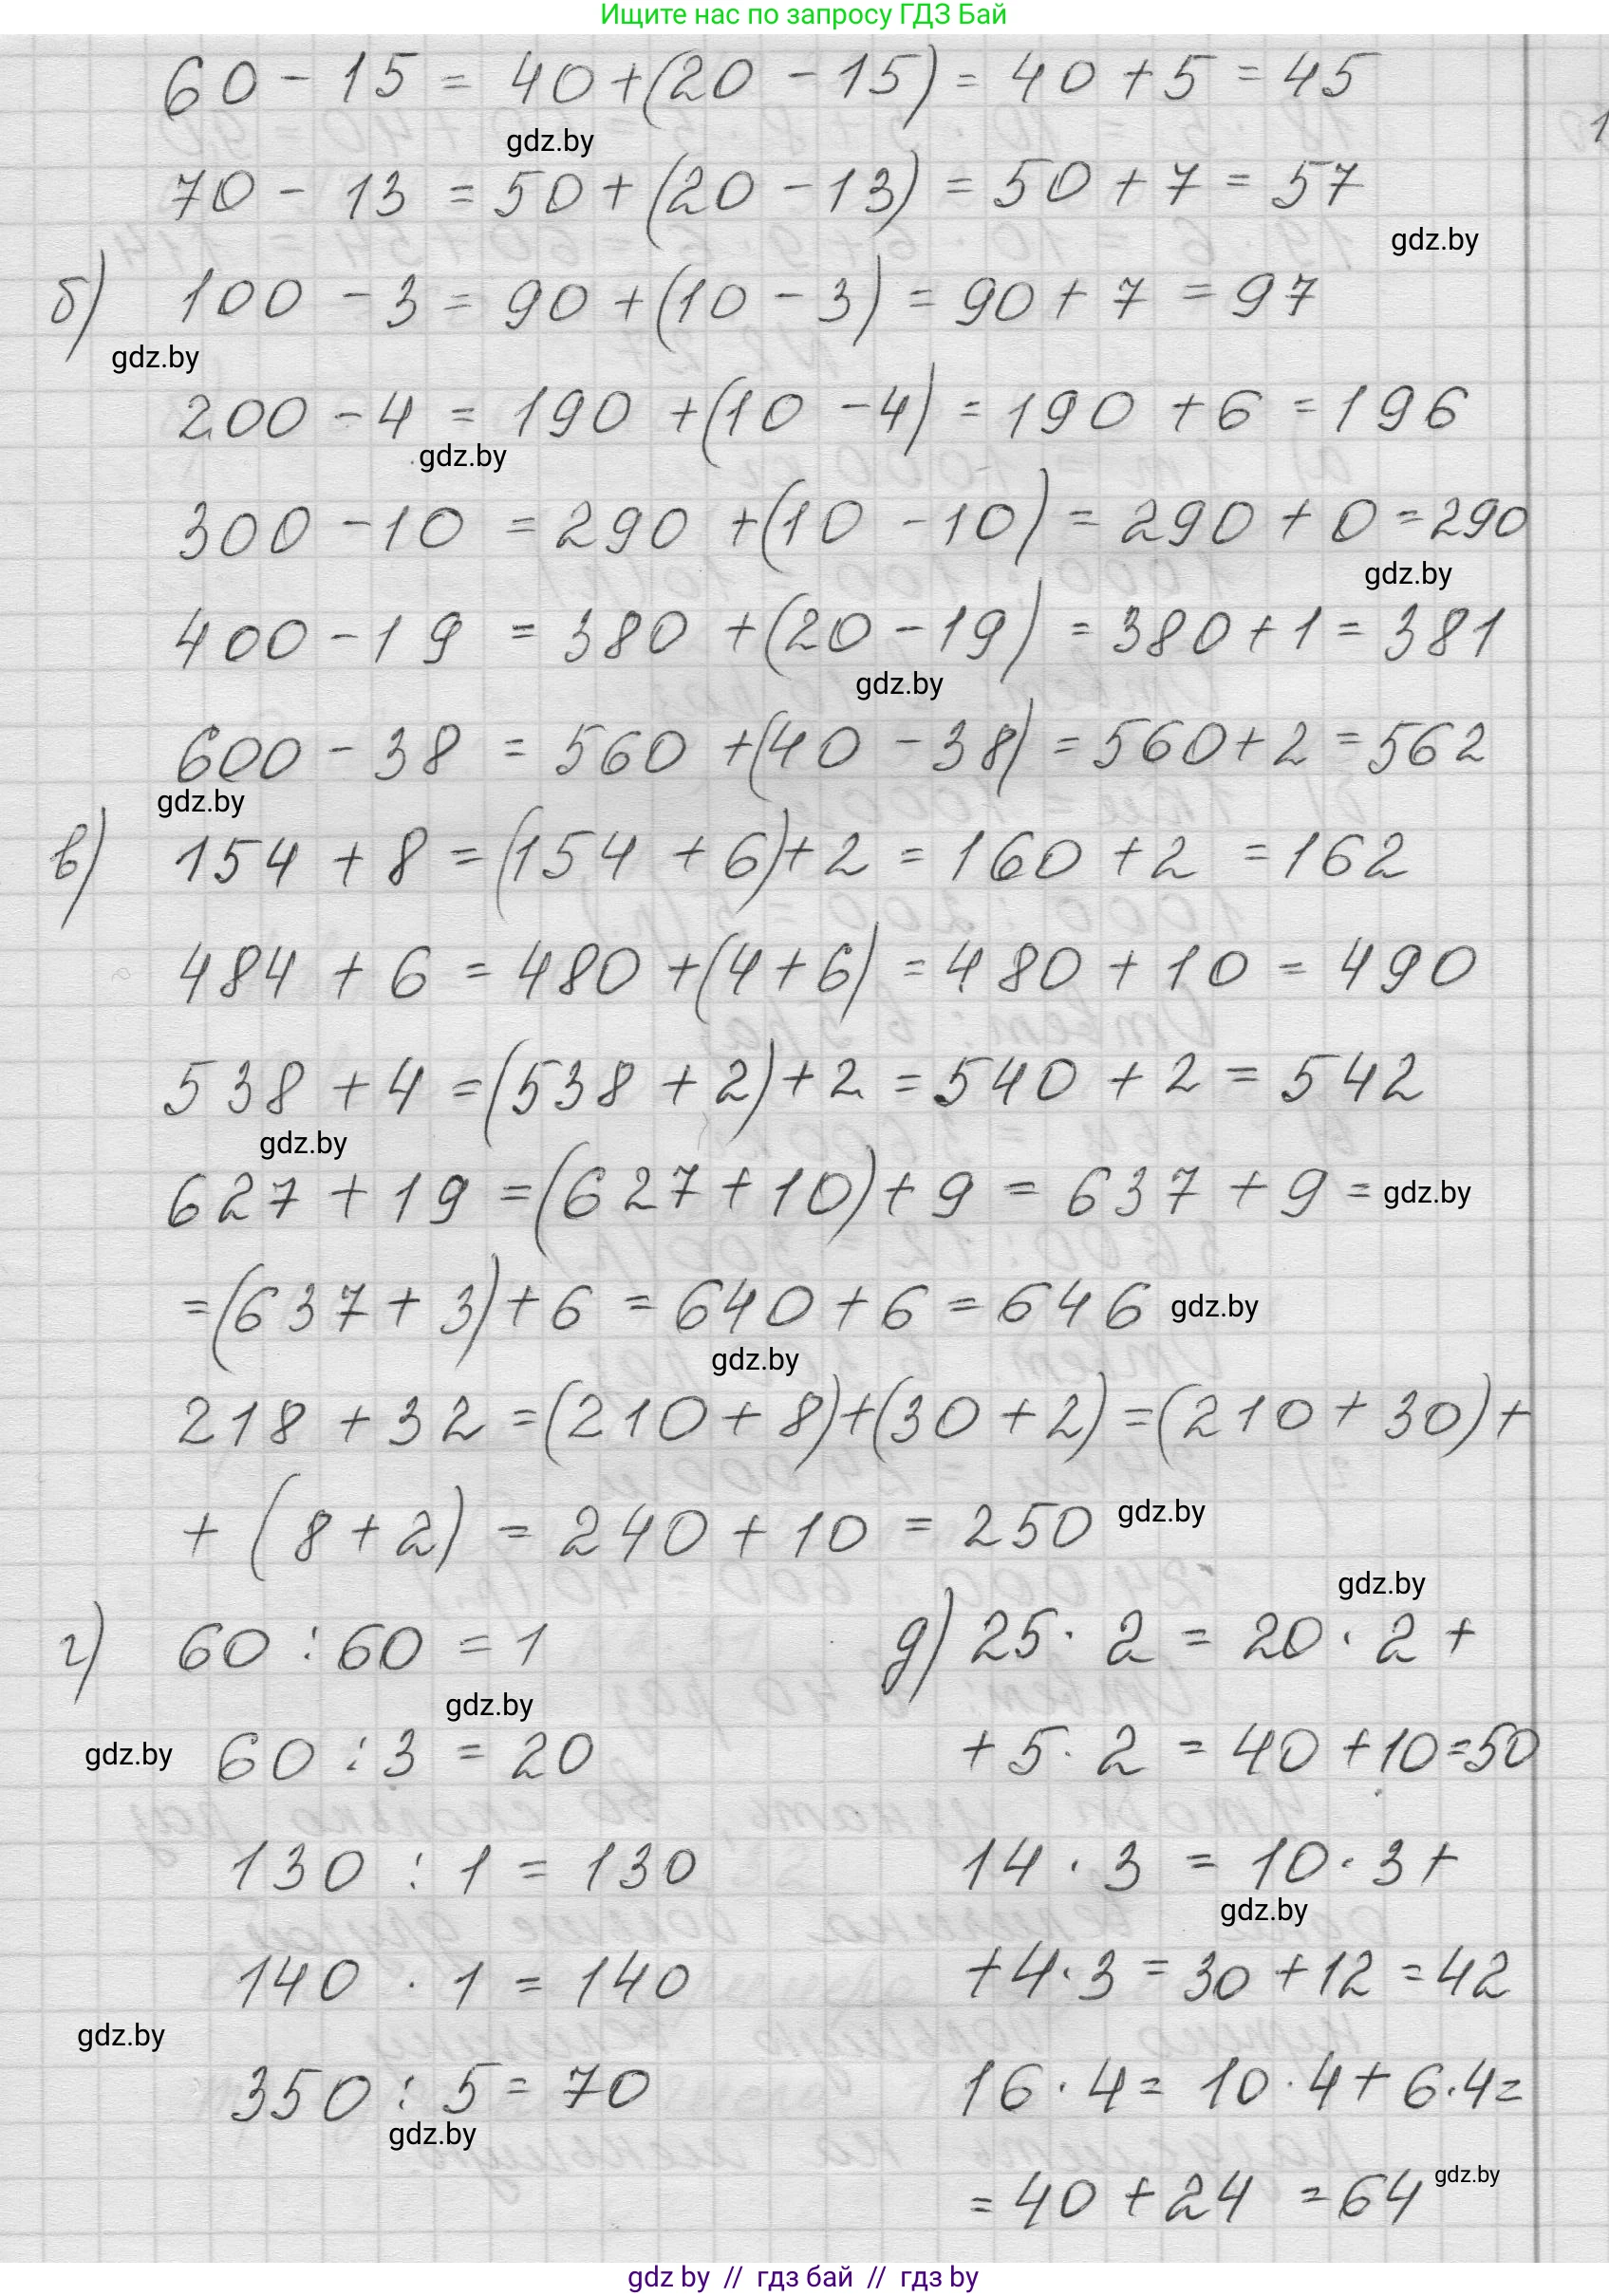 Ищите нас по запросу ГДЗ Бай
60 - 15 = 40 + (20 - 15) = 40 + 5 = 45
gdz.by
70 - 13 = 50 + (20 - 13) = 50 + 7 = 57
gdz.by
б) 100 - 3 = 90 + (10 - 3) = 90 + 7 = 97
gdz.by
200 - 4 = 190 + (10 - 4) = 190 + 6 = 196
gdz.by
300 - 10 = 290 + (10 - 10) = 290 + 0 = 290
gdz.by
400 - 19 = 380 + (20 - 19) = 380 + 1 = 381
gdz.by
600 - 38 = 560 + (40 - 38) = 560 + 2 = 562
gdz.by
в) 154 + 8 = (154 + 6) + 2 = 160 + 2 = 162
484 + 6 = 480 + (4 + 6) = 480 + 10 = 490
538 + 4 = (538 + 2) + 2 = 540 + 2 = 542
gdz.by
627 + 19 = (627 + 10) + 9 = 637 + 9 = gdz.by
= (637 + 3) + 6 = 640 + 6 = 646 gdz.by
gdz.by
218 + 32 = (210 + 8) + (30 + 2) = (210 + 30) +
+ (8 + 2) = 240 + 10 = 250 gdz.by
gdz.by
г) 60 : 60 = 1 д) 25 · 2 = 20 · 2 +
gdz.by
gdz.by 60 : 3 = 20 + 5 · 2 = 40 + 10 = 50
130 : 1 = 130 14 · 3 = 10 · 3 +
gdz.by
140 · 1 = 140 + 4 · 3 = 30 + 12 = 42
gdz.by
350 : 5 = 70 16 · 4 = 10 · 4 + 6 · 4 =
gdz.by
= 40 + 24 = 64 gdz.by
gdz by // гдз бай // гдз by